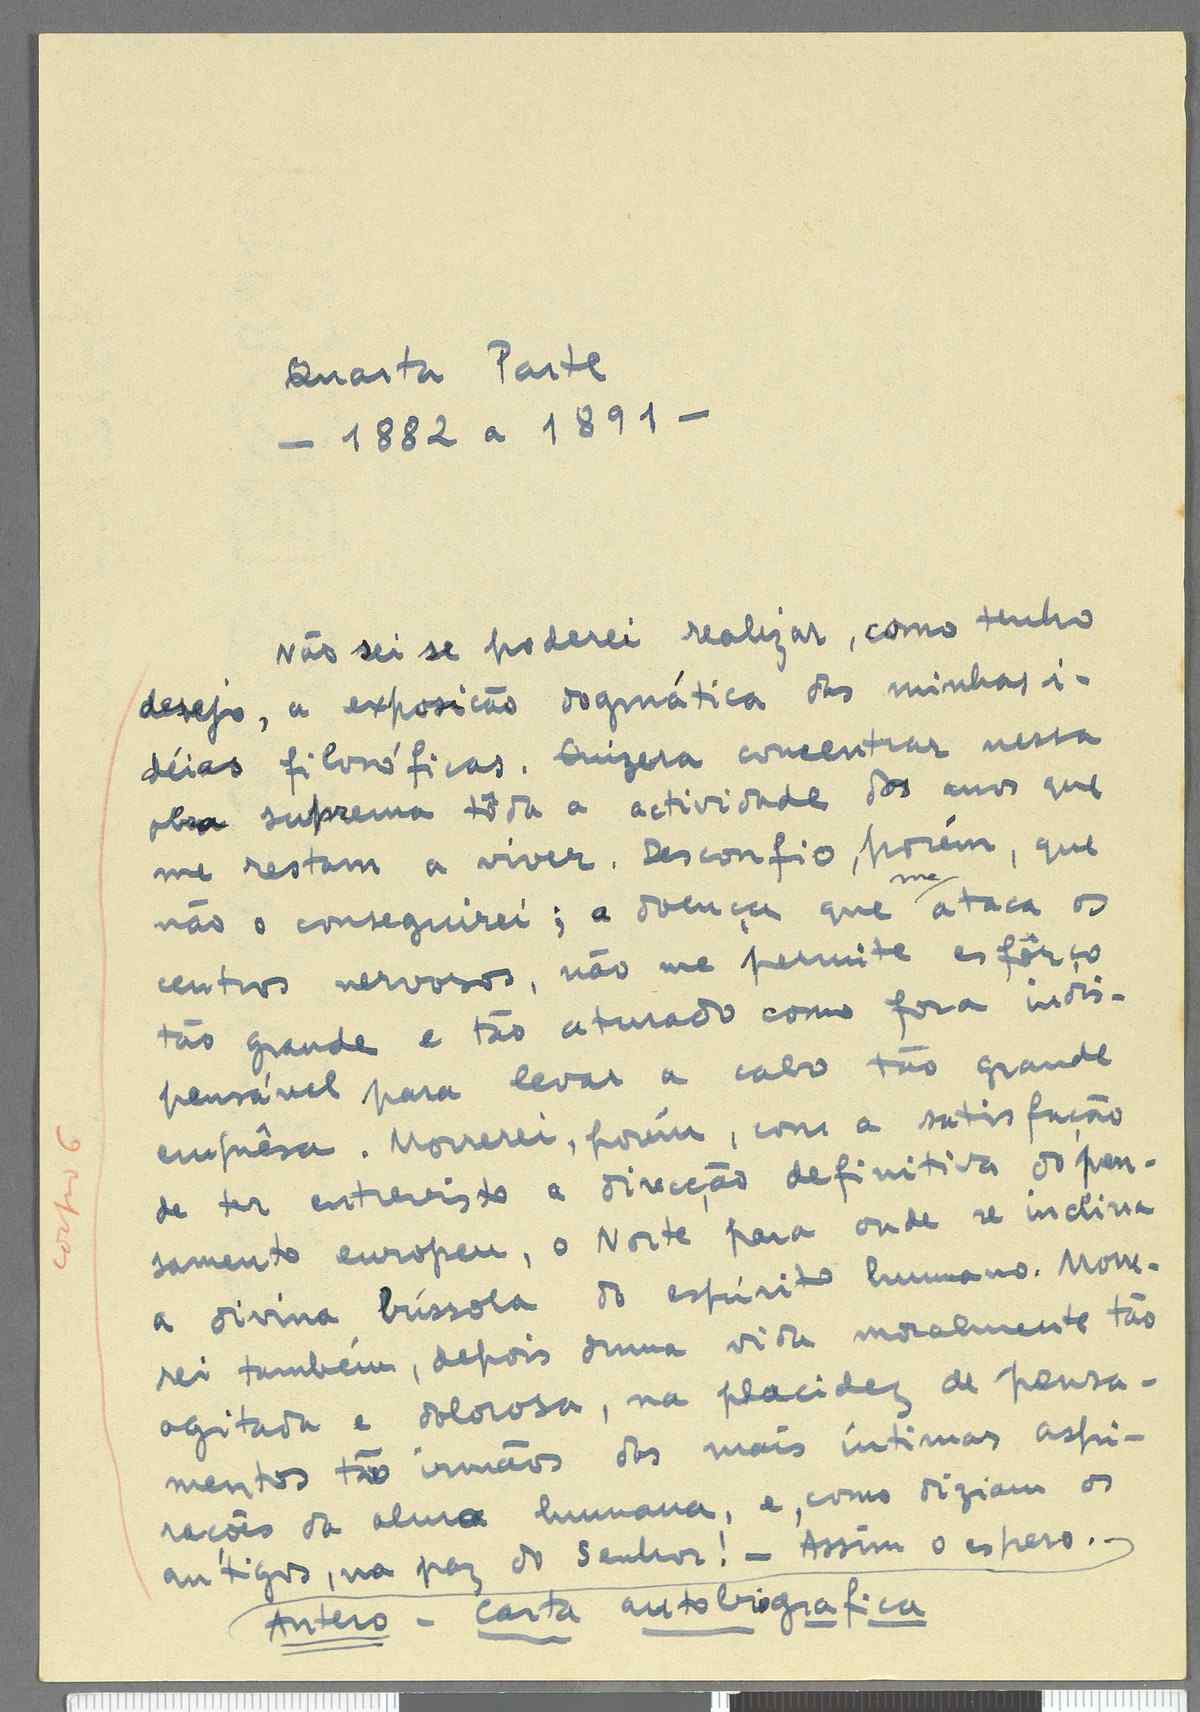 Quarta Parte
— 1882 a 1891 —
Não sei se poderei realizar, como tenho
desejo, a exposição dogmática das minhas i-
déias filosóficas. Quizera concentrar nessa
obra suprema tôda a actividade dos anos que
me restam a viver. Desconfio, porém, que
não o conseguirei; a doença que me ataca os
centros nervosos, não me permite esfôrço
tão grande e tão aturado como fora indis-
pensável para levar a cabo tão grande
emprêsa. Morrerei, porém, com a satisfação
de ter entrevisto a direcção definitiva do pen-
samento europeu, o Norte para onde se inclina
a divina bússola do espírito humano. Morre-
rei também, depois duma vida moralmente tão
agitada e dolorosa, na placidez de pensa-
mentos tão irmãos das mais íntimas aspi-
rações da alma humana, e, como diziam os
antigos, na paz do Senhor! — Assim o espero. -
Antero - Carta autobiografica
corpo 9